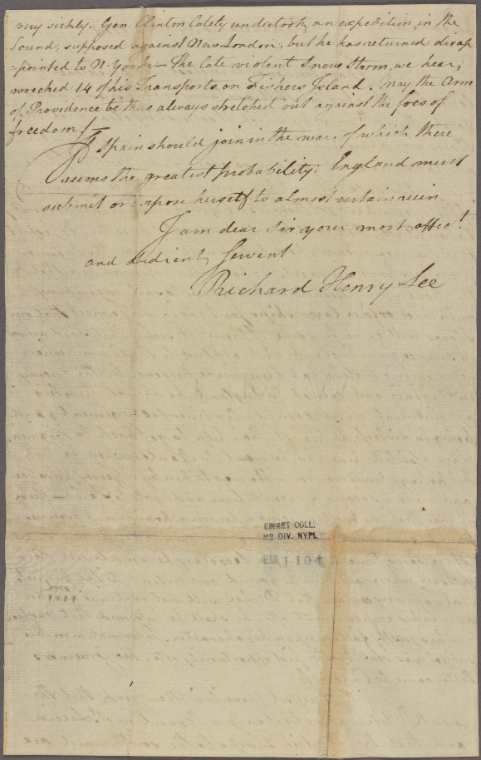 very sickly. Gen. Clinton lately undertook an expedition in the
Sound, supposed against New London, but he has returned disap
pointed to N. York — The late violent Snow Storm, we hear,
wrecked 14 of his Transports on Fishers Island. May the Arm
of Providence be thus always stretched out against the foes of
freedom!
If Spain should join in the war, of which there
seems the greatest probability; England must
submit or expose herself to almost certain ruin.
I am dear Sir your most affec.!
and obedient Servent
Richard Henry Lee
EMMET COLL.
MS. DIV. NYPL
EM 1104